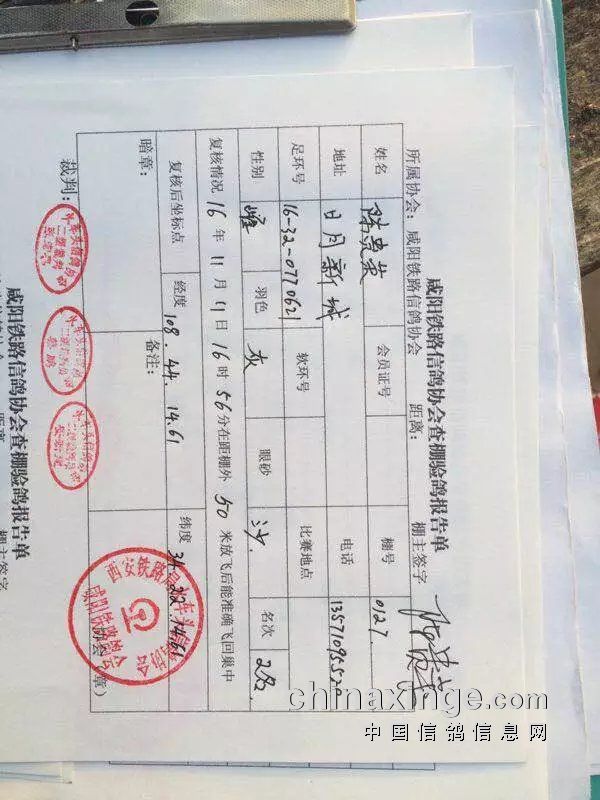 咸阳铁路信鸽协会查棚验鸽报告单
所属协会: 咸阳铁路信鸽协会 距离: 棚主签字
姓名 陈岁荣 会员证号 棚号 0127
地址 日月新城 电话
足环号 16-32-0770621 软环号 比赛地点
性别 雌 羽色 灰 眼砂 沙 名次 2名
复核情况 16年11月 日16时56分在距棚外50米放飞后能准确飞回巢中
复核后坐标点 经度 108.44.14.61 纬度
暗章: 备注:
裁判:
咸阳铁路信鸽协会(章)
咸阳铁路信鸽协会查棚验鸽报告单
距离: 棚主签字
chinaxinge.com
中国信鸽信息网